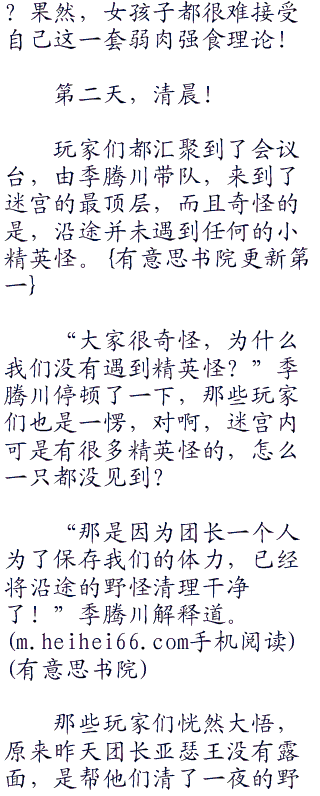 ？果然，女孩子都很难接受
自己这一套弱肉强食理论！
第二天，清晨！
玩家们都汇聚到了会议
台，由季腾川带队，来到了
迷宫的最顶层，而且奇怪的
是，沿途并未遇到任何的小
精英怪。{有意思书院更新第
一}
“大家很奇怪，为什么
我们没有遇到精英怪？”季
腾川停顿了一下，那些玩家
们也是一愣，对啊，迷宫内
可是有很多精英怪的，怎么
一只都没见到？
“那是因为团长一个人
为了保存我们的体力，已经
将沿途的野怪清理干净
了！”季腾川解释道。
(m.heihei66.com手机阅读)
(有意思书院)
那些玩家们恍然大悟，
原来昨天团长亚瑟王没有露
面，是帮他们清了一夜的野